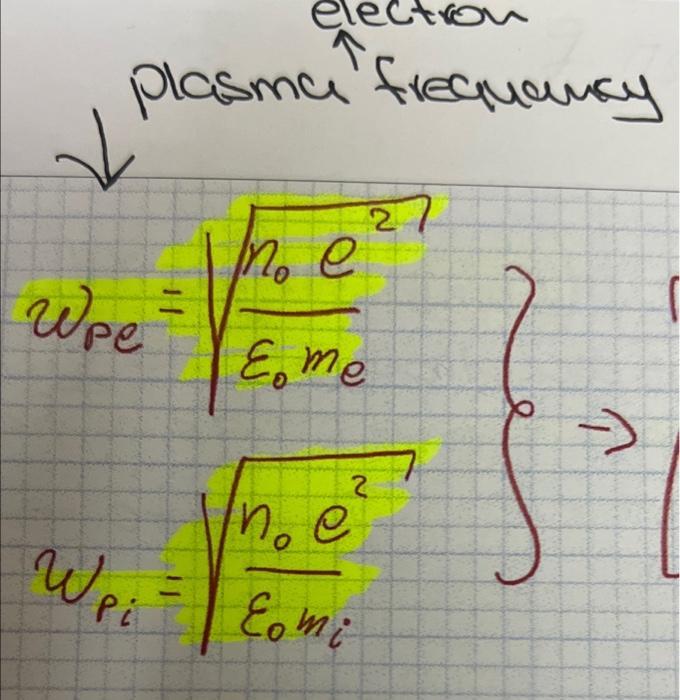 electron
plasma frequency
ω_pe = √(n₀ e² / ε₀ m_e)
ω_pi = √(n₀ e² / ε₀ m_i)